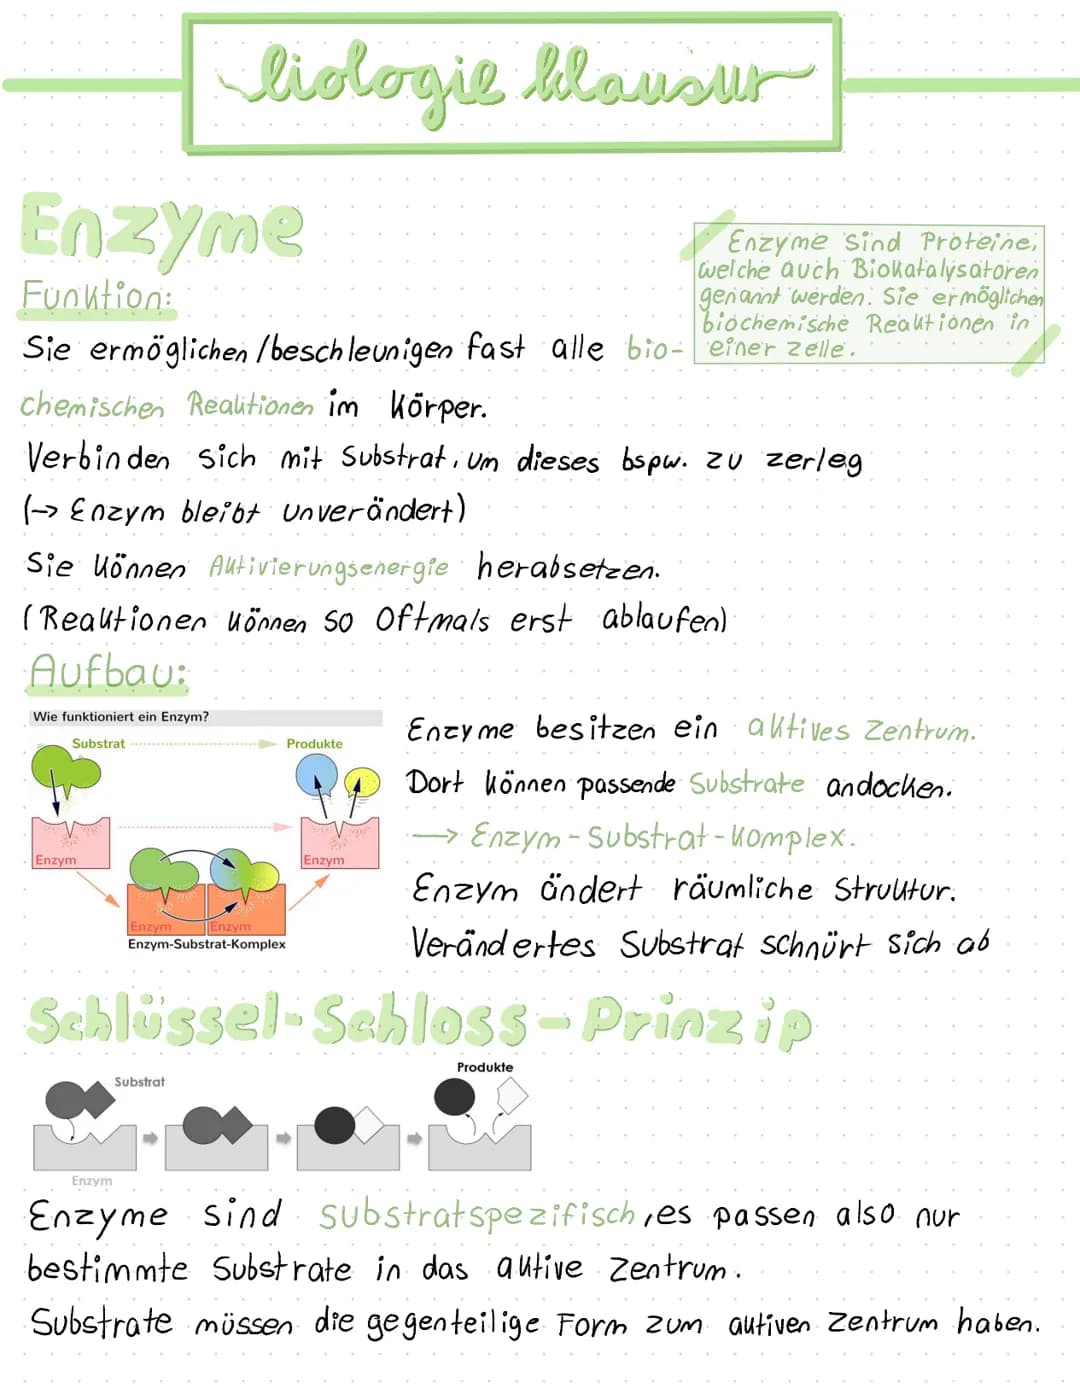 biologie klausur
Enzyme
Enzyme sind Proteine,
welche auch Biokatalysatoren
genannt werden. Sie ermöglichen
biochemische Reaktionen in
einer Zelle.
Funktion:
Sie ermöglichen/beschleunigen fast alle bio-
chemischen Reaktionen im Körper.
Verbinden sich mit Substrat, um dieses bspw. zu zerleg
(→ Enzym bleibt unverändert)
Sie können Aktivierungsenergie herabsetzen.
(Reaktionen können so oftmals erst ablaufen)
Aufbau:
Wie funktioniert ein Enzym?
Substrat
Produkte
Enzym
Enzym
Enzym
Enzym
Enzym-Substrat-Komplex
Enzyme besitzen ein aktives Zentrum.
Dort können passende Substrate andocken.
→ Enzym-Substrat-Komplex.
Enzym ändert räumliche Struktur.
Verändertes Substrat schnürt sich ab
Schlüssel-Schloss-Prinzip
Substrat
Produkte
Enzym
Enzyme sind substratspezifisch, es passen also nur
bestimmte Substrate in das aktive Zentrum.
Substrate müssen die gegenteilige Form zum aktiven Zentrum haben.